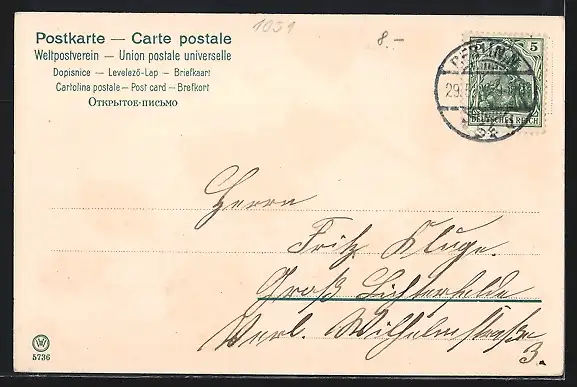 1051
8.-
Postkarte — Carte postale
Weltpostverein — Union postale universelle
Dopisnice — Levelező-Lap — Brefkaart
Cartolina postale — Post card — Brefkort
Открытое-письмо
5
DEUTSCHES REICH
BERLIN N.
29.5
Herrn
Fritz Kluge.
Groß Lichterfelde
Verl. Wilhelmstraße
3.
5736